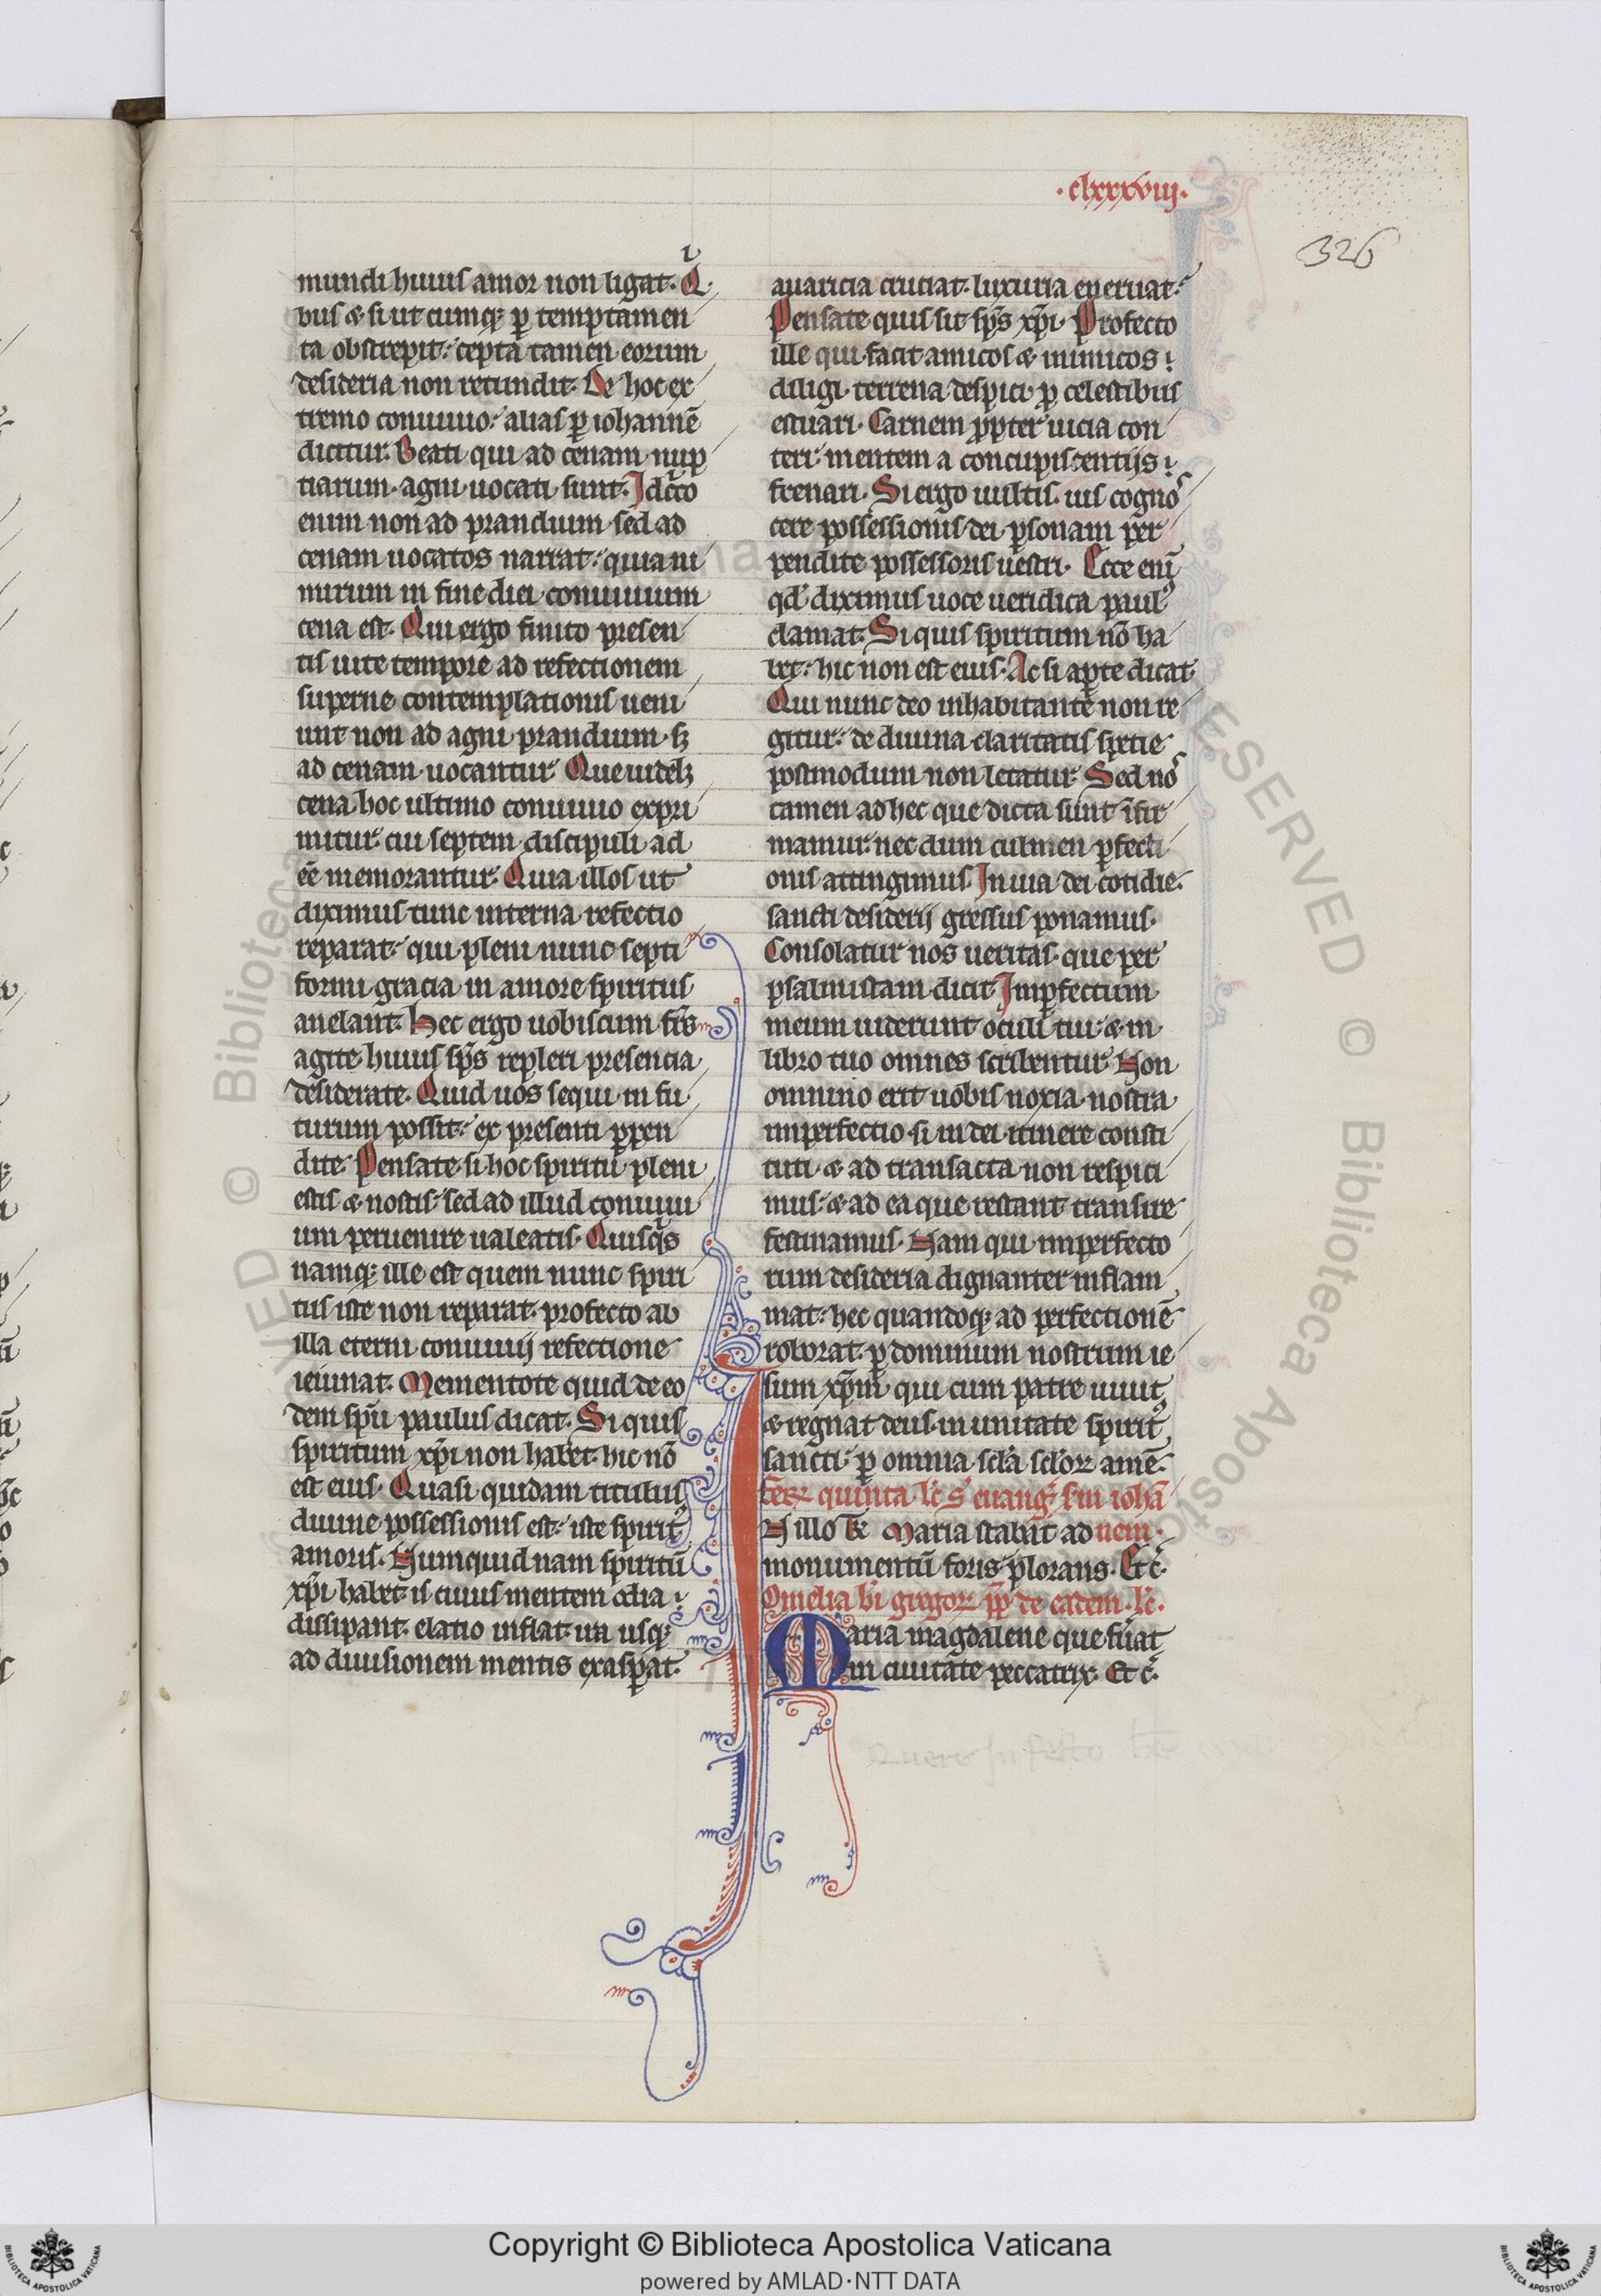 ·clxxxviij·
326
mundi huius amor non ligat. Qi
bus & si ut cumq; p̱ temptamen
ta obstrepit: cepta tamen eorum
desideria non retundit. De hoc ex
tremo conuiuio: alias p̱ iohannē
dicitur. Beati qui ad cenam nup
tiarum agni uocati sunt. Idc̓co
enim non ad prandium sed ad
cenam uocatos narrat: quia ni
mirum in fine diei conuiuium
cena est. Qui ergo finito presen
tis uite tempore ad refectionem
superne contemplationis ueni
unt non ad agni prandium sꝫ
ad cenam uocantur. Que uidelꝫ
cena hoc ultimo conuiuio expri
mitur: cui septem discipuli ad
eē memorantur. Quia illos ut
diximus tunc interna refectio
reparat: qui pleni nunc septi
formi gracia in amore spiritus
anelant. Hec ergo uobiscum frs̄
agite huius sps̄ repleri presencia
desiderate. Quid uos sequi in fu
turum possit: ex presenti p̱pen
dite. Pensate si hoc spiritu pleni
estis & nostis: sed ad illud conuiui
um peruenire ualeatis. Quisq̓s
namq; ille est quem nunc spiri
tus iste non reparat: profecto ab
illa eterni conuiuij refectione
ieiunat. Mementote quid de eo
dem spū paulus dicat. Si quis
spiritum xp̄i non habet: hic nō
est eius. Quasi quidam titulus
diuine possessionis est: iste spirit᾽
amoris. Numquid nam spiritū
xp̄i habet: is cuius mentem odia
dissipant. elatio inflat. ira usq;
ad diuisionem mentis exasp̱at.
auaricia cruciat. luxuria eneruat:
Pensate quis sit sps̄ xp̄i. Profecto
ille qui facit amicos & inimicos
diligi. terrena despici. p̱ celestibus
estuari. Carnem pp̱ter uicia con
teri mentem a concupiscentijs
frenari. Si ergo uultis uis cognos
cere possessionis dei p̱sonam per
pendite possessoris uestri. Ecce enī
qđ diximus uoce ueridica paul᾽
clamat. Si quis spiritum nō ha
bet: hic non est eius. Ac si ap̱te dicat
Qui nunc deo inhabitante non re
gitur: de diuina claritatis sp̄cie
postmodum non letatur. Sed nos
tamen ad hec que dicta sunt īfir
mamur: nec dum culmen p̱fecti
onis attingimus. In uia dei cotidie
sancti desiderij gressus ponamus.
Consolatur nos ueritas. que per
psalmistam dicit. Imp̱fectum
meum uiderunt oculi tui: & in
libro tuo omnes scribentur. Non
omnino erit uobis noxia nostra
imperfectio si in dei itinere consti
tuti & ad transacta non respici
mus: & ad ea que restant transire
festinamus. Nam qui imperfecto
rum desideria dignanter inflam
mat: hec quandoq; ad perfectionē
roborat. p̱ dominum nostrum ie
sum xp̄m qui cum patre uiuit
& regnat deus. in unitate spirit᾽
sancti: p̱ omnia sc̄la sc̄loꝝ amē.
fēꝝ quinta. lc̄ s̓ euang̓. scm̄ iohā
nem.
In illo tē. Maria stabat ad
monumentū foris plorans. Et c̓.
Omelia bī gregoꝝ pp̄ de eadem. lc̄.
Maria magdalene que fuat
in ciuitate peccatrix. Et c̓.
Quere in festo
Copyright © Biblioteca Apostolica Vaticana
powered by AMLAD·NTT DATA